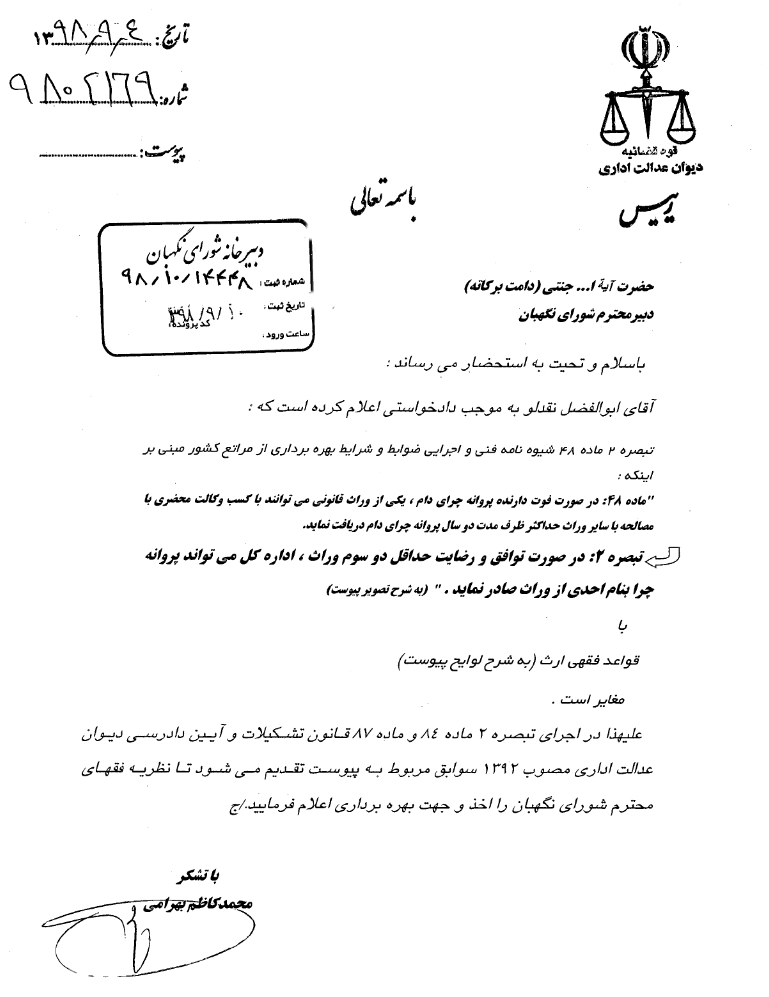 تاریخ: ۱۳۹۸٫۹٫۴
شماره: ۹۸۰۲۱۶۹
پیوست:
قوه قضائیه
دیوان عدالت اداری
رییس
باسمه تعالی
دبیرخانه شورای نگهبان
شماره ثبت: ۹۸/۱۰/۱۴۴۴۸
تاریخ ثبت: ۱۳۹۸/۹/۱۰
کد پرونده:
ساعت ورود:
حضرت آیة ا... جنتی (دامت برکاته)
دبیر محترم شورای نگهبان
باسلام و تحیت به استحضار می رساند :
آقای ابوالفضل نقدلو به موجب دادخواستی اعلام کرده است که :
تبصره ۲ ماده ۴۸ شیوه نامه فنی و اجرایی ضوابط و شرایط بهره برداری از مراتع کشور مبنی بر
اینکه :
"ماده ۴۸: در صورت فوت دارنده پروانه چرای دام ، یکی از وراث قانونی می توانند با کسب وکالت محضری با
مصالحه با سایر وراث حداکثر ظرف مدت دو سال پروانه چرای دام دریافت نماید.
تبصره ۲: در صورت توافق و رضایت حداقل دو سوم وراث ، اداره کل می تواند پروانه
چرا بنام احدی از وراث صادر نماید . " (به شرح تصویر پیوست)
با
قواعد فقهی ارث (به شرح لوایح پیوست)
مغایر است .
علیهذا در اجرای تبصره ۲ ماده ۸۴ و ماده ۸۷ قانون تشکیلات و آیین دادرسی دیوان
عدالت اداری مصوب ۱۳۹۲ سوابق مربوط به پیوست تقدیم می شود تا نظریه فقهای
محترم شورای نگهبان را اخذ و جهت بهره برداری اعلام فرمایید./ج
با تشکر
محمدکاظم بهرامی